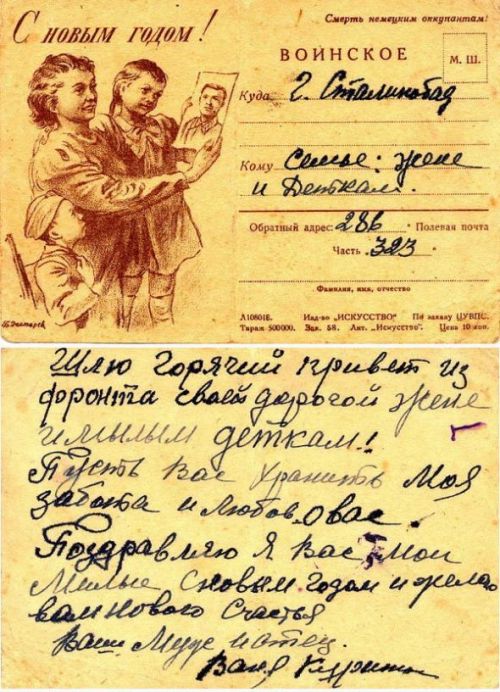 С НОВЫМ ГОДОМ!
Смерть немецким оккупантам!
ВОИНСКОЕ
М. Ш.
Куда г. Сталинабад
Кому Семье: жене
и Деткам.
Обратный адрес: 286 Полевая почта
Часть 323
Фамилия, имя, отчество
А10801Б. Изд-во „ИСКУССТВО“ По заказу ЦУВПС.
Тираж 500000. Зак. 58. Лит. „Искусство“. Цена 10 коп.
Шлю Горячий привет из
фронта своей дорогой жене
и милым деткам!
Пусть вас хранить Моя
забота и любов о вас.
Поздравляю я вас Мои
Милые с новым годом и желаю
вам нового счастья
Ваш Муж и отец.
Ваня